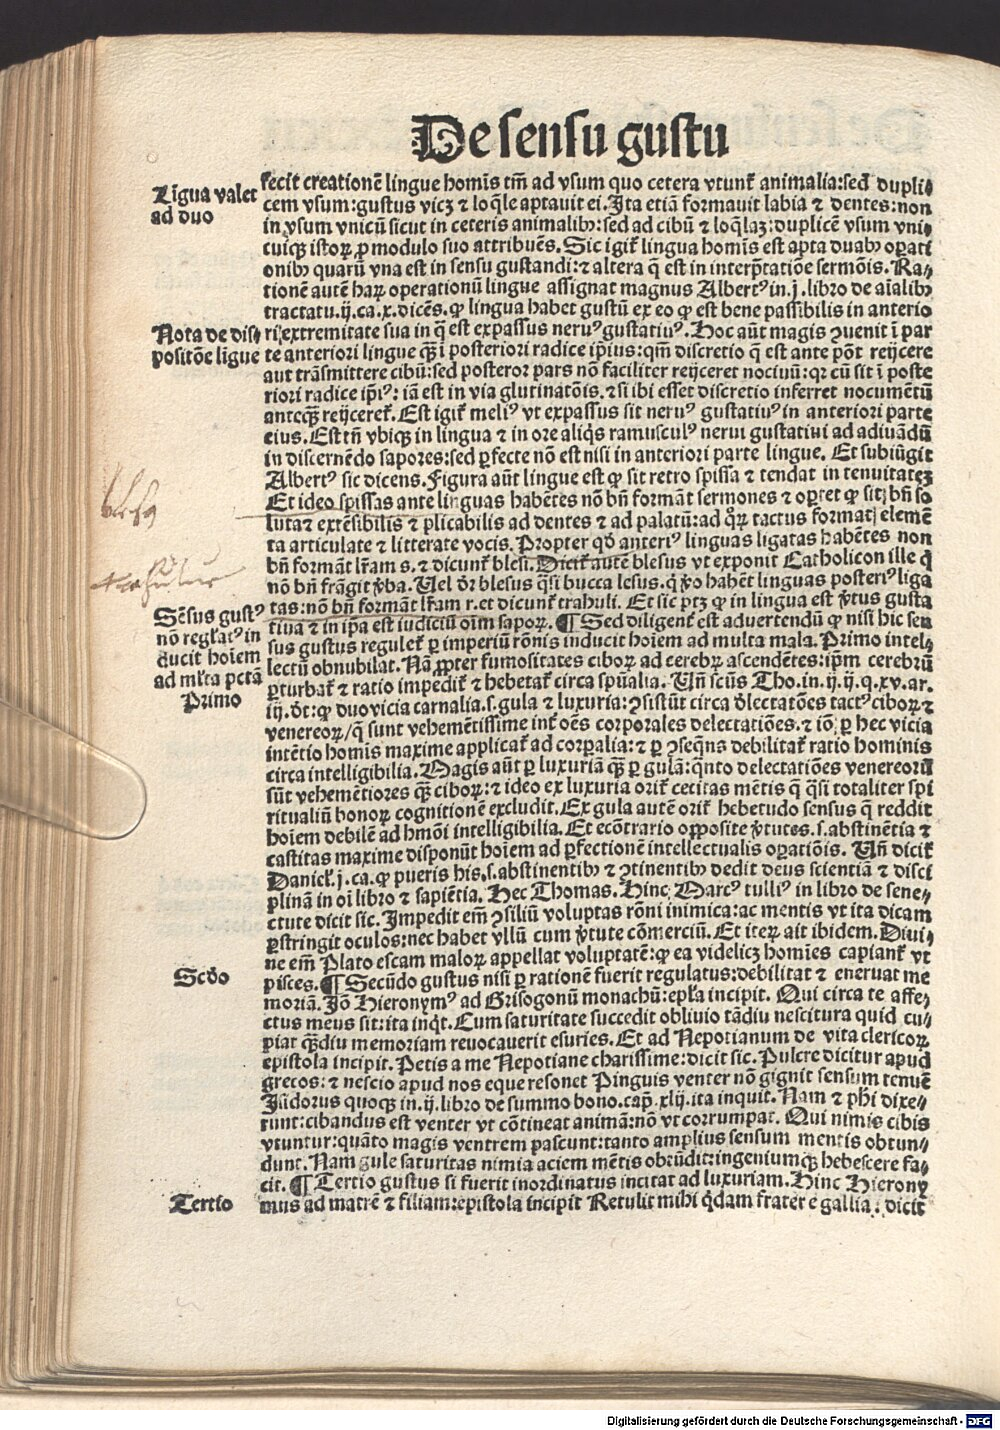 De sensu gustu
Līgua valet
ad duo
fecit creationē lingue homīs tm̄ ad vsum quo cetera vtunt᷑ animalia:sed dupli⸗
cem vsum:gustus vicꝫ ⁊ loq̄le aptauit ei. Ita etiā formauit labia ⁊ dentes:non
in vsum vnicū sicut in ceteris animalibꝫ:sed ad cibū ⁊ loq̄laꝫ:duplicē vsum vni⸗
cuiqꝫ istoꝝ ꝓ modulo suo attribuēs. Sic igit᷑ lingua homīs est apta duabꝫ oꝑati
onibꝫ quarū vna est in sensu gustandi:⁊ altera q̄ est in interp̄tatiōe sermōis. Ra⸗
tionē autē haꝝ operationū lingue assignat magnus Albertꝰ in.j.libro de aīalibꝫ
tractatu.ij.ca.x.dicēs. ꝙ lingua habet gustū ex eo ꝙ est bene passibilis in anterio
Nota de dis⸗
positōe ligue
ri extremitate sua in q̄ est expassus neruꝰ gustatiuꝰ. Hoc aūt magis ꝯuenit ī par
te anteriori lingue qꝫ̄ ī posteriori radice ip̄ius:qm̄ discretio q̄ est ante pōt reijcere
aut trāsmittere cibū:sed posteror pars nō faciliter reijceret nociuū:qꝛ cū sit ī poste
riori radice ip̄iꝰ: iā est in via glutinatōis. ⁊ si ibi esset discretio inferret nocumētū
anteqꝫ̄ reijceret᷑. Est igit᷑ meliꝰ vt expassus sit neruꝰ gustatiuꝰ in anteriori parte
eius. Est tn̄ vbiqꝫ in lingua ⁊ in ore aliq̄s ramusculꝰ nerui gustatiui ad adiuādū
in discernēdo sapores:sed ꝑfecte nō est nisi in anteriori parte lingue. Et subiūgit
Albertꝰ sic dicens. Figura aūt lingue est ꝙ sit retro spissa ⁊ tendat in tenuitateꝫ
Et ideo spissas ante linguas habētes nō bn̄ formāt sermones ⁊ oꝑtet ꝙ sit bn̄ so
luta ⁊ extēsibilis ⁊ plicabilis ad dentes ⁊ ad palatū:ad qꝝ tactus format elemē
ta articulate ⁊ litterate vocis. Propter qd̄ anteriꝰ linguas ligatas habētes non
bn̄ formāt lr̄am s. ⁊ dicunt᷑ blesi. Dicit᷑ autē blesus vt exponit Catholicon ille q̄
nō bn̄ frāgit v̄ba. Uel dr̄ blesus q̄si bucca lesus. q̄ v̄o habēt linguas posteriꝰ liga
Sēsus gustꝰ
nō regl̄atꝰ in
ducit hoīem
ad ml̄ta pctā
Primo
tas:nō bn̄ formāt lr̄am r. et dicunt᷑ trahuli. Et sic ptꝫ ꝙ in lingua est v̄tus gusta
tiua ⁊ in ip̄a est iudiciū oīm sapoꝝ. ¶ Sed diligent᷑ est aduertendū ꝙ nisi hic sen
sus gustus regulet᷑ ꝑ imperiū rōnis inducit hoīem ad multa mala. Primo intel⸗
lectū obnubilat. Nā ꝓpter fumositates ciboꝝ ad cerebꝝ ascendētes:ip̄m cerebrū
ꝑturbat᷑ ⁊ ratio impedit᷑ ⁊ hebetat᷑ circa spūalia. Un̄ scūs Tho.in.ij.ij.q.xv.ar.
iij.dt:ꝙ duo vicia carnalia.s.gula ⁊ luxuria:ꝯsistūt circa d̄lectatōes tactꝰ ciboꝝ ⁊
venereoꝝ/q̄ sunt vehemētissime int᷑ oēs corporales delectatiōes.⁊ iō ꝑ hec vicia
intētio homīs maxime applicat᷑ ad corꝑalia:⁊ ꝑ ꝯseq̄ns debilitat᷑ ratio hominis
circa intelligibilia. Magis aūt ꝑ luxuriā qꝫ̄ ꝑ gulā:q̄nto delectatiōes venereorū
sūt vehemētiores qꝫ̄ ciboꝝ:⁊ ideo ex luxuria orit᷑ cecitas mētis q̄ q̄si totaliter spi
ritualiū bonoꝝ cognitionē excludit. Ex gula autē orit᷑ hebetudo sensus q̄ reddit
hoīem debilē ad hmōi intelligibilia. Et ecōtrario oꝓposite v̄tutes.s.abstinētia ⁊
castitas maxime disponūt hoīem ad ꝑfectionē intellectualis oꝑatiōis. Un̄ dicit᷑
Daniel᷑.j.ca.ꝙ pueris his.s.abstinentibꝫ ⁊ ꝯtinentibꝫ dedit deus scientiā ⁊ disci
plinā in oī libro ⁊ sapiētia. Hec Thomas. Hinc Marcꝰ tulliꝰ in libro de sene⸗
ctute dicit sic. Impedit em̄ ꝯsiliū voluptas rōni inimica:ac mentis vt ita dicam
ꝑstringit oculos:nec habet vllū cum v̄tute cōmerciū. Et iteꝝ ait ibidem. Diui⸗
ne em̄ Plato escam maloꝝ appellat voluptatē:ꝙ ea videlicꝫ homīes capiant᷑ vt
Scd̄o
pisces. ¶ Secūdo gustus nisi ꝑ rationē fuerit regulatus:debilitat ⁊ eneruat me
moriā. Iō Hieronymꝰ ad Grisogonū monachū:epl̄a incipit. Qui circa te affe⸗
ctus meus sit:ita inq̄t. Cum saturitate succedit obliuio tādiu nescitura quid cu⸗
piat qꝫ̄diu memoriam reuocauerit esuries. Et ad Nepotianum de vita clericoꝝ
epistola incipit. Petis a me Nepotiane charissime:dicit sic. Pulcre dicitur apud
grecos:⁊ nescio apud nos eque resonet Pinguis venter nō gignit sensum tenuē
Isidorus quoqꝫ in.ij.libro de summo bono.cap.xlij.ita inquit. Nam ⁊ phi dixe⸗
runt:cibandus est venter vt cōtineat animā:nō vt corrumpat. Qui nimis cibis
vtuntur:quāto magis ventrem pascunt:tanto amplius sensum mentis obtun⸗
dunt. Nam gule saturitas nimia aciem mētis obtūdit:ingeniumqꝫ hebescere fa⸗
Tertio
cit. ¶ Tertio gustus si fuerit inordinatus incitat ad luxuriam. Hinc Hierony
mus ad matrē ⁊ filiam:epistola incipit Retulit mihi q̄dam frater e gallia: dicit
Digitalisierung gefördert durch die Deutsche Forschungsgemeinschaft - DFG